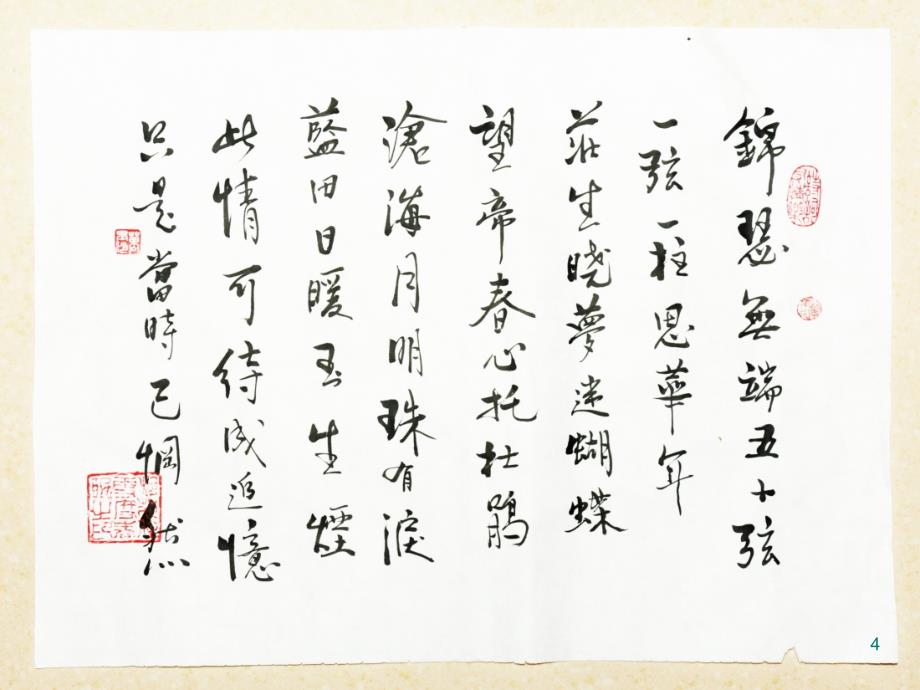 錦瑟無端五十弦
一弦一柱思華年
莊生曉夢迷蝴蝶
望帝春心托杜鵑
滄海月明珠有淚
藍田日暖玉生煙
此情可待成追憶
只是當時已惘然
4